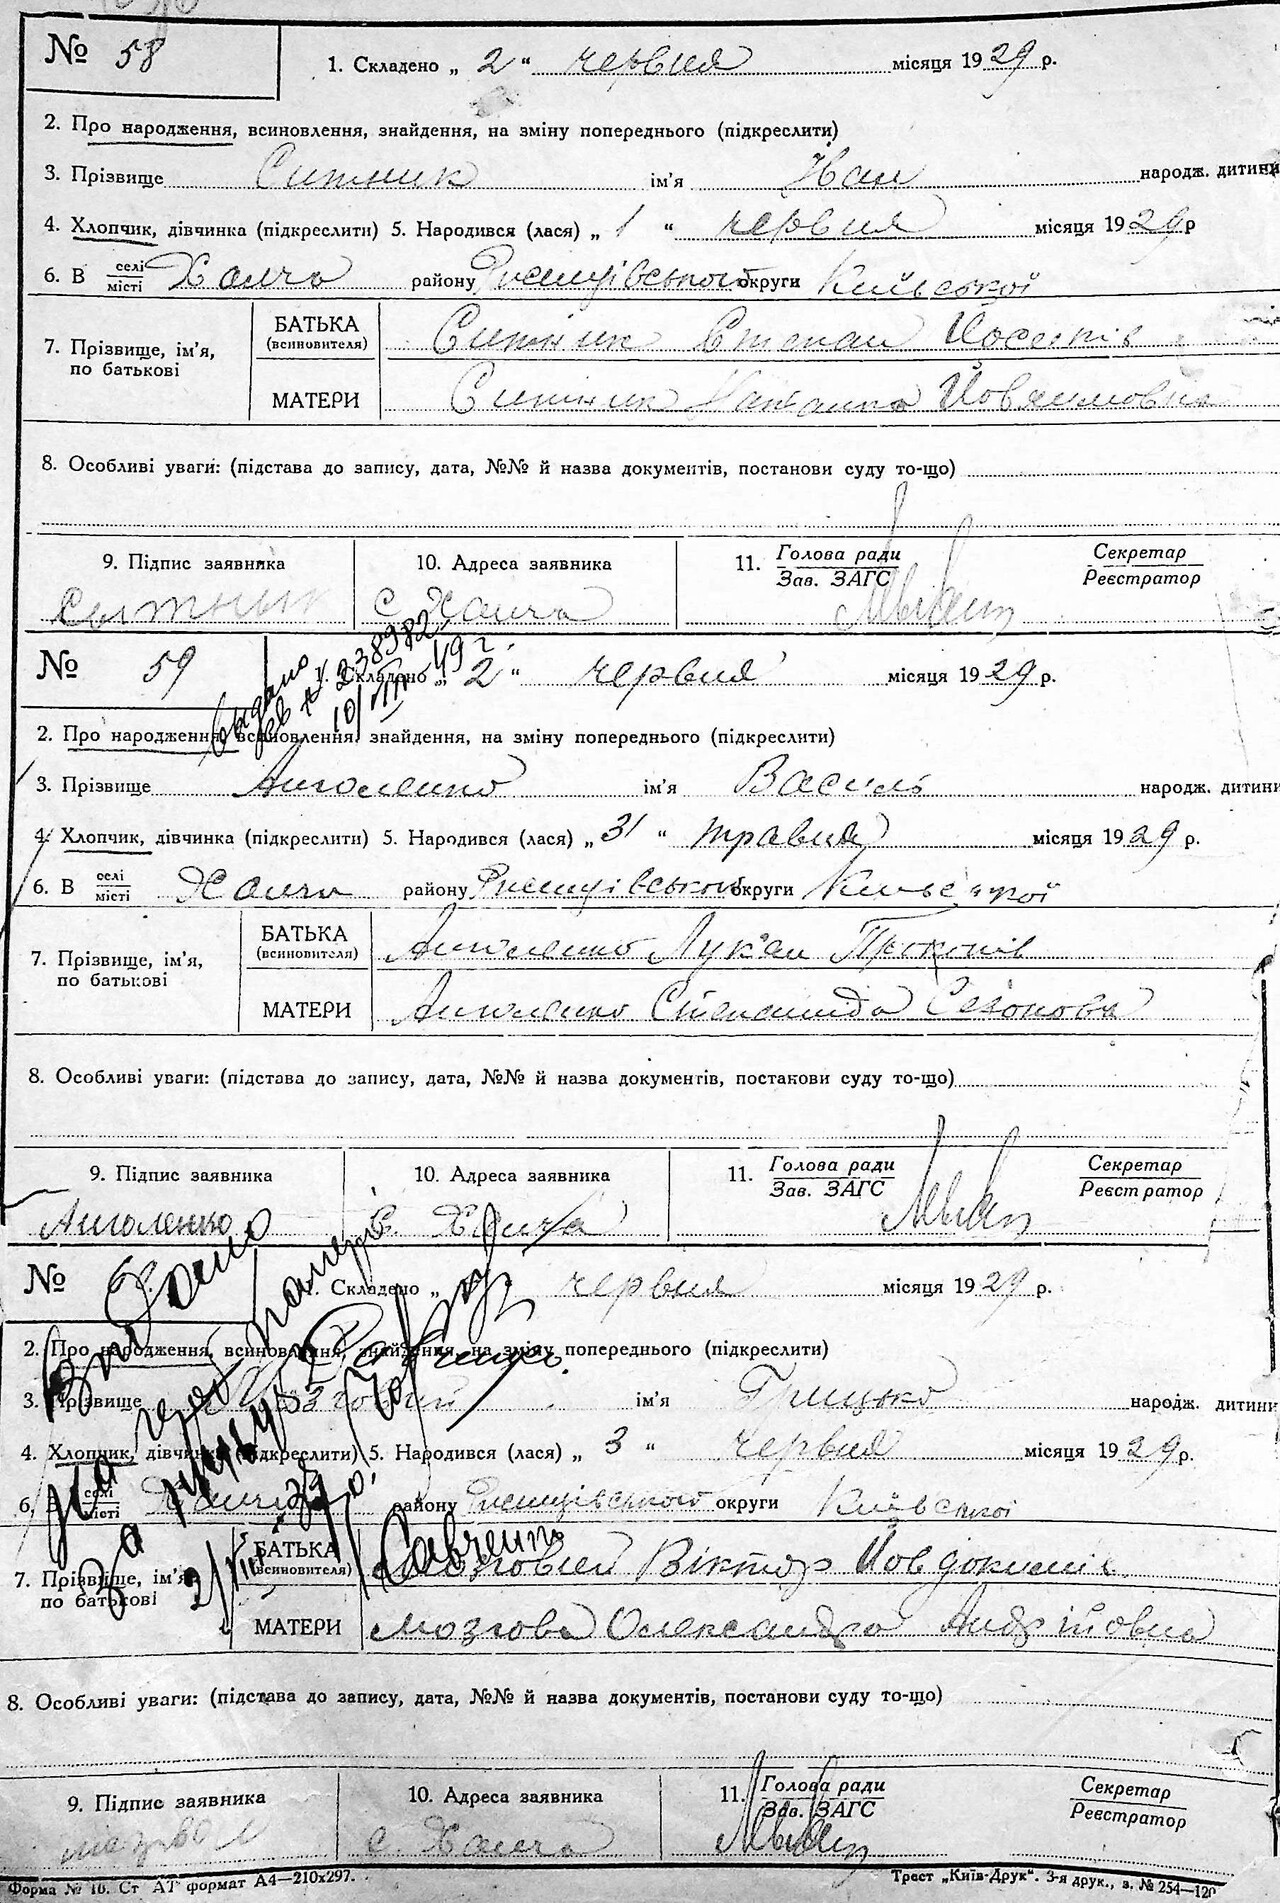 № 58
1. Складено „ 2 “ червня місяця 1929 р.
2. Про народження, всиновлення, знайдення, на зміну попереднього (підкреслити)
3. Прізвище Ситник ім'я Іван народж. дитини
4. Хлопчик, дівчинка (підкреслити) 5. Народився (лася) „ 1 “ червня місяця 1929 р
6. В селі місті Халча району Ржищівського округи Київської
7. Прізвище, ім'я, по батькові
БАТЬКА (всиновителя) Ситник Степан Йосипів
МАТЕРИ Ситник
8. Особливі уваги: (підстава до запису, дата, №№ й назва документів, постанови суду то-що)
9. Підпис заявника 10. Адреса заявника 11. Голова ради Зав. ЗАГС Секретар Реєстратор
Сытнык с. Халча
№ 59
1. Складено „ 2 “ червня місяця 1929 р.
Выдано св № 238982 10/VIII 49 г.
2. Про народження, всиновлення, знайдення, на зміну попереднього (підкреслити)
3. Прізвище ім'я Василь народж. дитини
4. Хлопчик, дівчинка (підкреслити) 5. Народився (лася) „ 31 “ травня місяця 1929 р.
6. В селі місті Халча району Ржищівського округи Київської
7. Прізвище, ім'я, по батькові
БАТЬКА (всиновителя) Лук'ян Прокопів
МАТЕРИ Степанида
8. Особливі уваги: (підстава до запису, дата, №№ й назва документів, постанови суду то-що)
9. Підпис заявника 10. Адреса заявника 11. Голова ради Зав. ЗАГС Секретар Реєстратор
с. Халча
№ 60
1. Складено „ “ червня місяця 1929 р.
2. Про народження, всиновлення, знайдення, на зміну попереднього (підкреслити)
3. Прізвище Мозговий ім'я Грицько народж. дитини
4. Хлопчик, дівчинка (підкреслити) 5. Народився (лася) „ 3 “ червня місяця 1929 р.
6. В селі місті Халча району Ржищівського округи Київської
7. Прізвище, ім'я, по батькові
БАТЬКА (всиновителя) Мозговий Віктор Йовдокимів
МАТЕРИ Мозгова Олександра Андріївна
Савченко
8. Особливі уваги: (підстава до запису, дата, №№ й назва документів, постанови суду то-що)
9. Підпис заявника 10. Адреса заявника 11. Голова ради Зав. ЗАГС Секретар Реєстратор
с. Халча
Форма № 16. Ст АТ формат А4—210x297. Трест „Київ-Друк“. 3-я друк., з. № 254—120